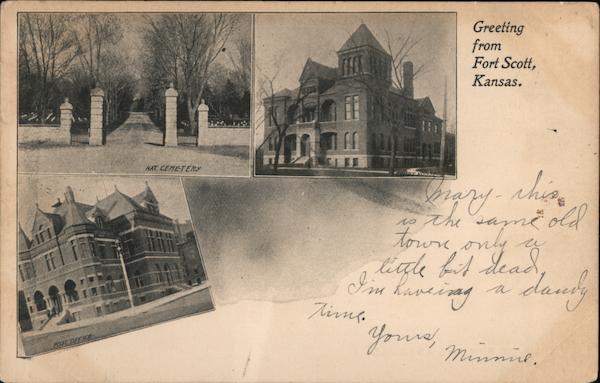 Greeting
from
Fort Scott,
Kansas.
NAT. CEMETERY
POST OFFICE
Mary - this
is the same old
town only a
little bit dead,
I'm haveing a dandy
time.
Yours,
Minnie.